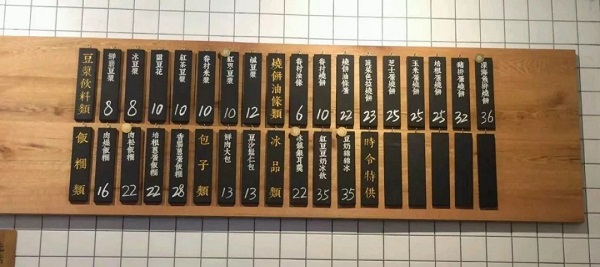 豆漿飲料類
鮮磨豆漿 8
冰豆漿 8
鹹豆花 10
紅茶豆漿 10
眷村米漿 10
紅棗豆漿 10
鹹豆漿 12
燒餅油條類
眷村油條 6
眷村燒餅 10
燒餅油條蛋 22
蔬菜色拉燒餅 23
芝士蛋燒餅 25
玉米蛋燒餅 25
培根蛋燒餅 25
豬排蛋燒餅 32
深海魚排燒餅 36
飯糰類
肉燥飯糰 16
肉鬆飯糰 22
培根蔥蛋飯糰 22
香腸蔥蛋飯糰 28
包子類
鮮肉大包 13
豆沙龍仁包 13
冰品類
冰鎮銀耳羹 22
紅豆豆奶冰飲 35
豆奶綿綿冰 35
時令特供